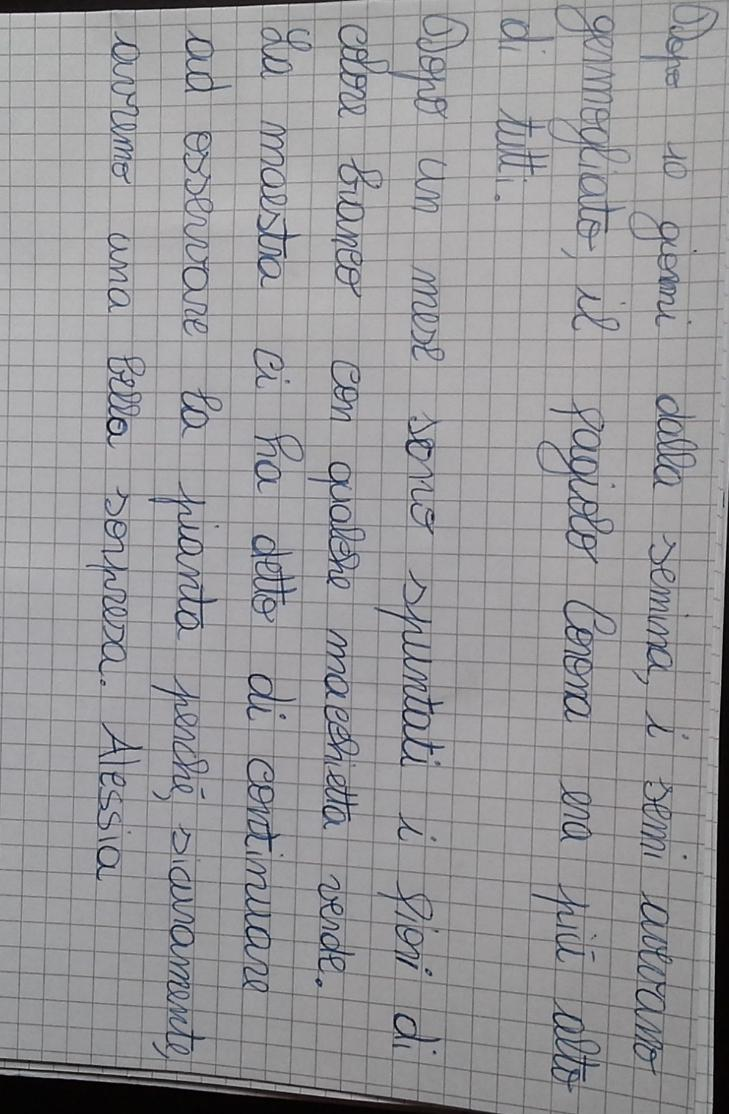 Dopo 10 giorni dalla semina, i semi avevano
germogliato, il fagiolo Corona era più alto
di tutti.
Dopo un mese sono spuntati i fiori di
colore bianco con qualche macchietta verde.
La maestra ci ha detto di continuare
ad osservare la pianta perché, sicuramente,
avremo una bella sorpresa. Alessia